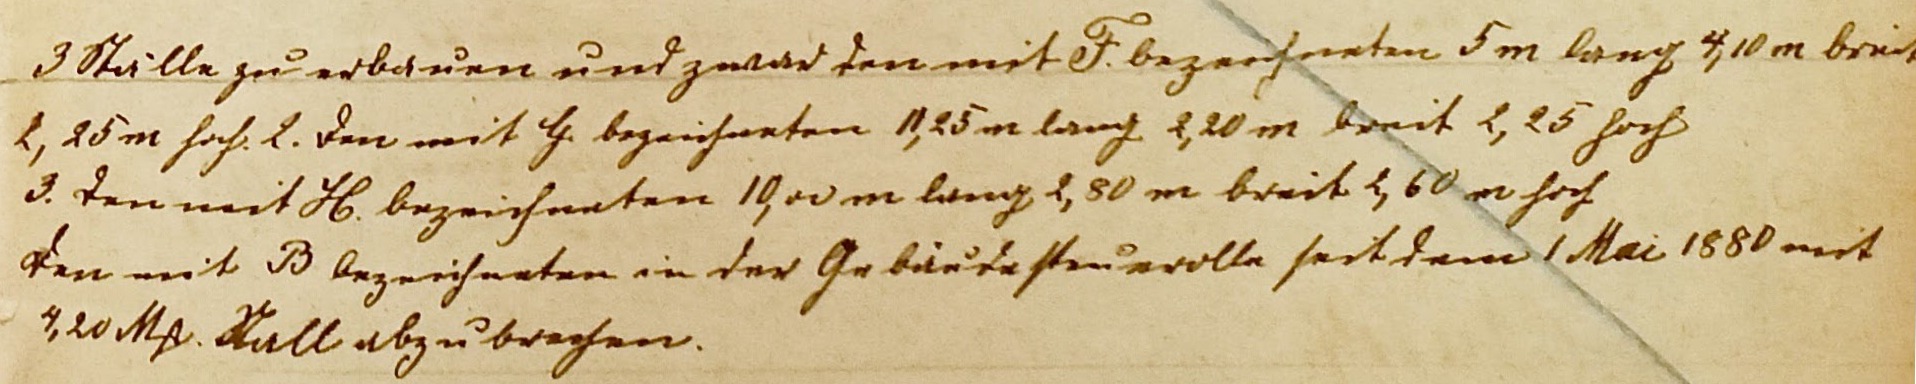 3 Ställe zu erbauen und zwar den mit F. bezeichneten 5 m lang 4,10 m breit
2,25 m hoch. 2. den mit G. bezeichneten 11,25 m lang 2,20 m breit 2,25 hoch
3. den mit H. bezeichneten 10,00 m lang 2,80 m breit 2,60 m hoch
den mit B bezeichneten in der Gebäudesteuerrolle seit dem 1 Mai 1880 mit
4,20 Mk. Stall abzubrechen.